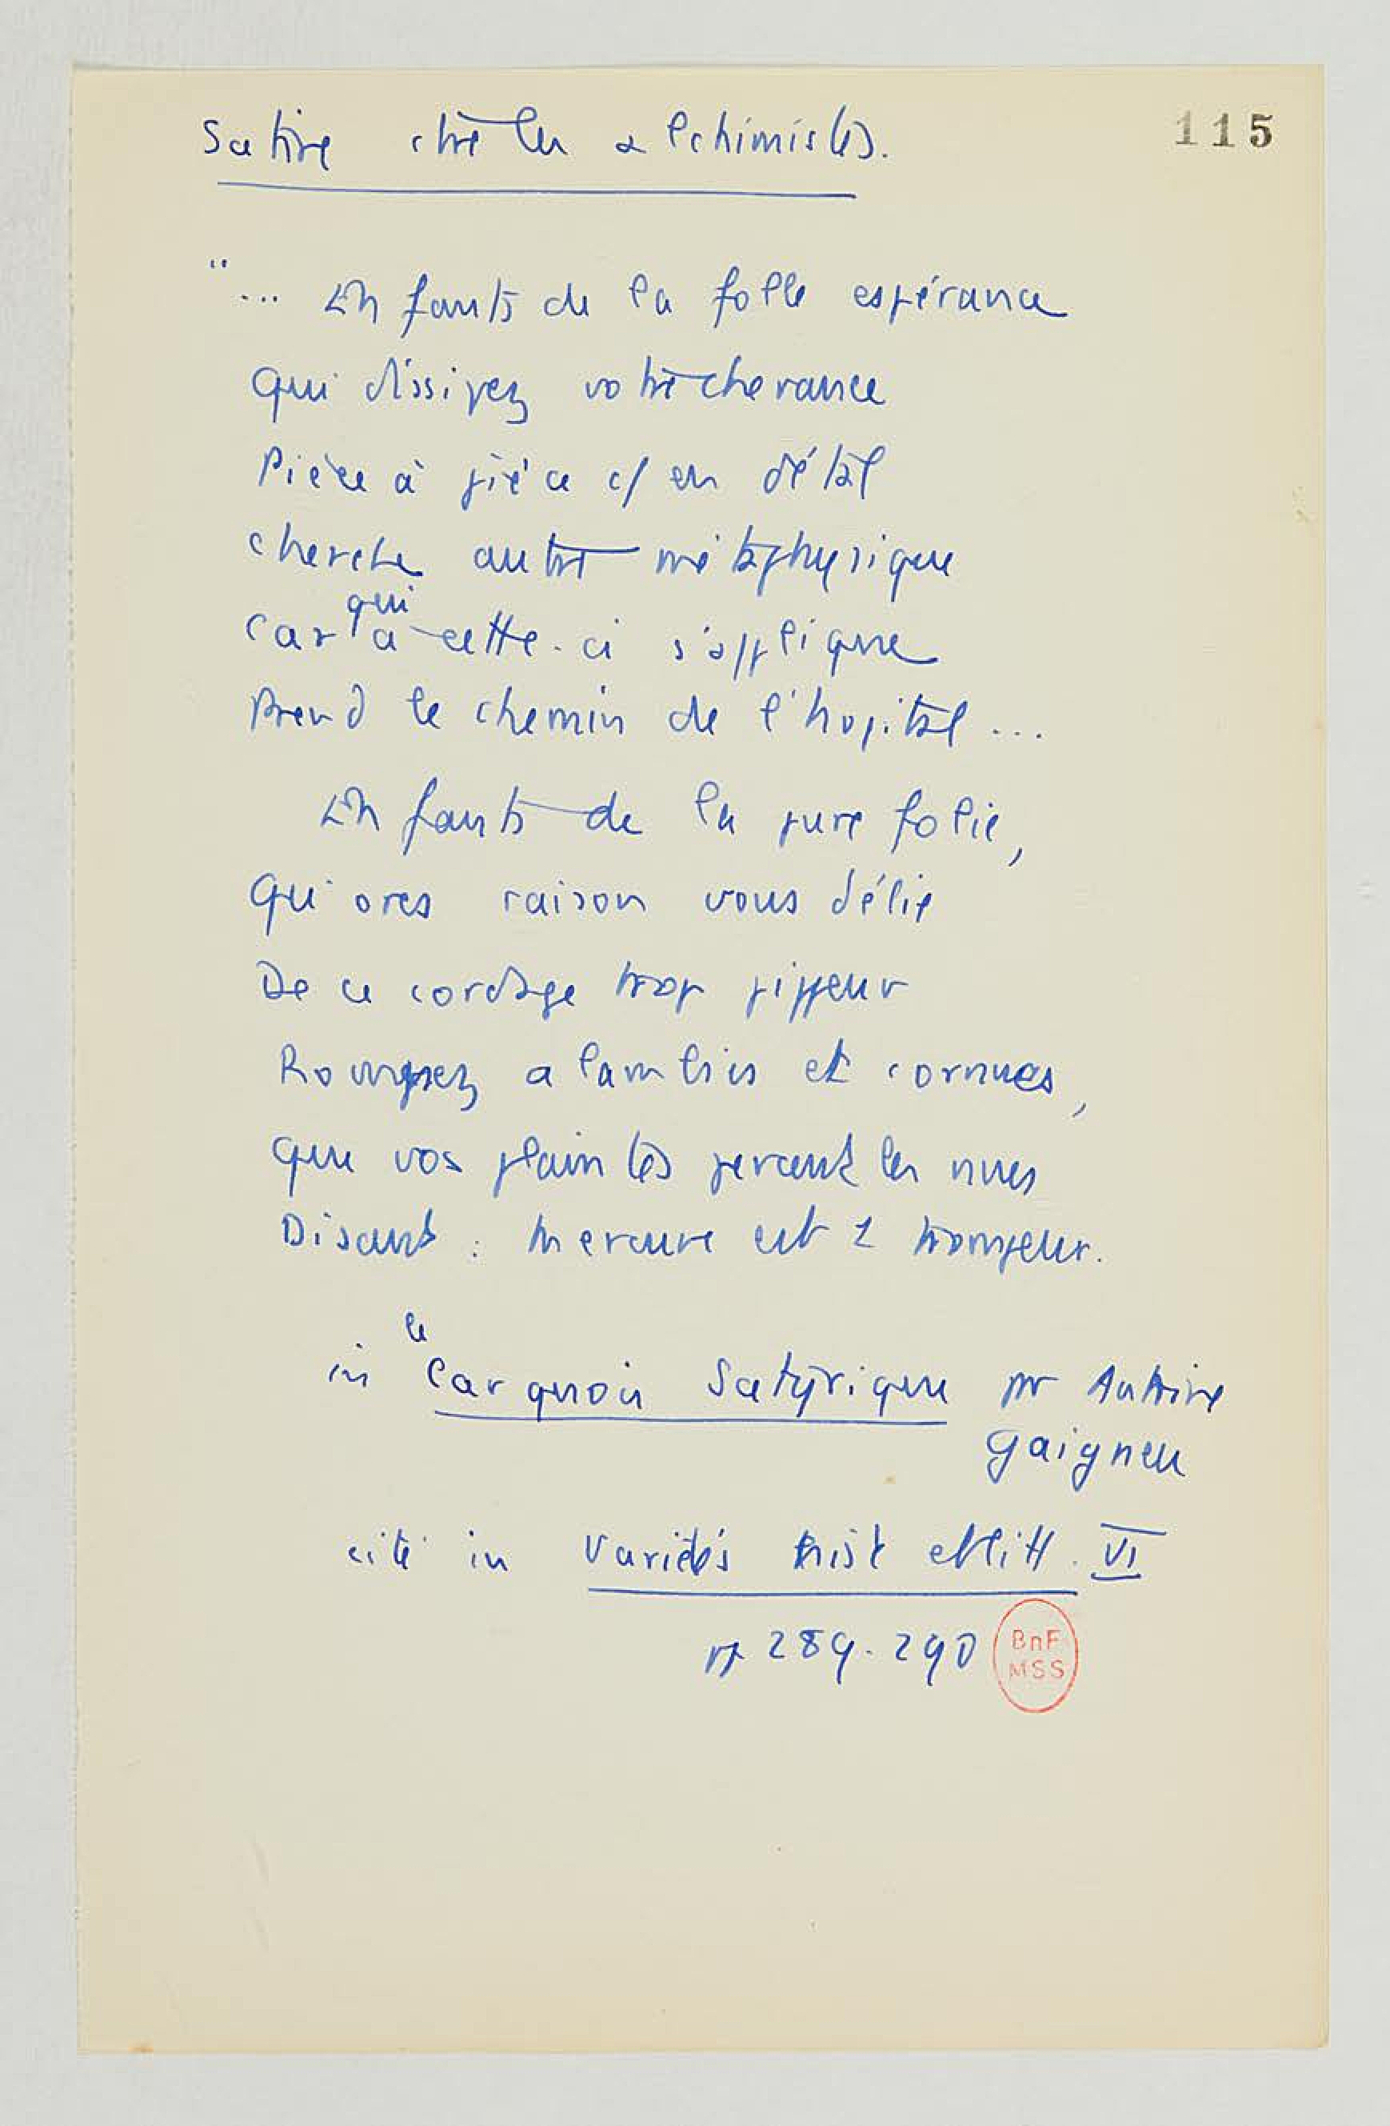 Satire ctre les alchimistes.
115
"... Enfants de la folle espérance
Qui dissipez votre chevance
Pièce à pièce et en détal
cherche autre métaphysique
qui
Car à cette-ci s'applique
Prend le chemin de l'hopital ...
Enfants de la pure folie,
Qui ores raison vous délie
De ce cordage trop pippeur
Rompez alambics et cornues,
que vos plaintes percent les nues
Disant : Mercure est 1 trompeur.
le
in Carquois Satyrique par Antoine
Gaigneu
cité in Variétés hist et litt. VI
pp 289-290
BnF
MSS